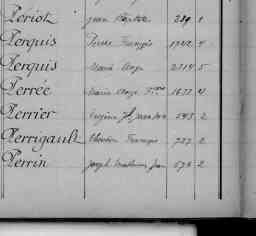 Periot Jean Baptiste 289 1
Perquis Pierre François 1722 4
Perquis Marie Ange 2314 5
Perrée Marie Ange Fse 1677 4
Perrier Eugène Jean 545 2
Perrigault François 727 2
Perrin Joseph Mathurin Jean 673 2